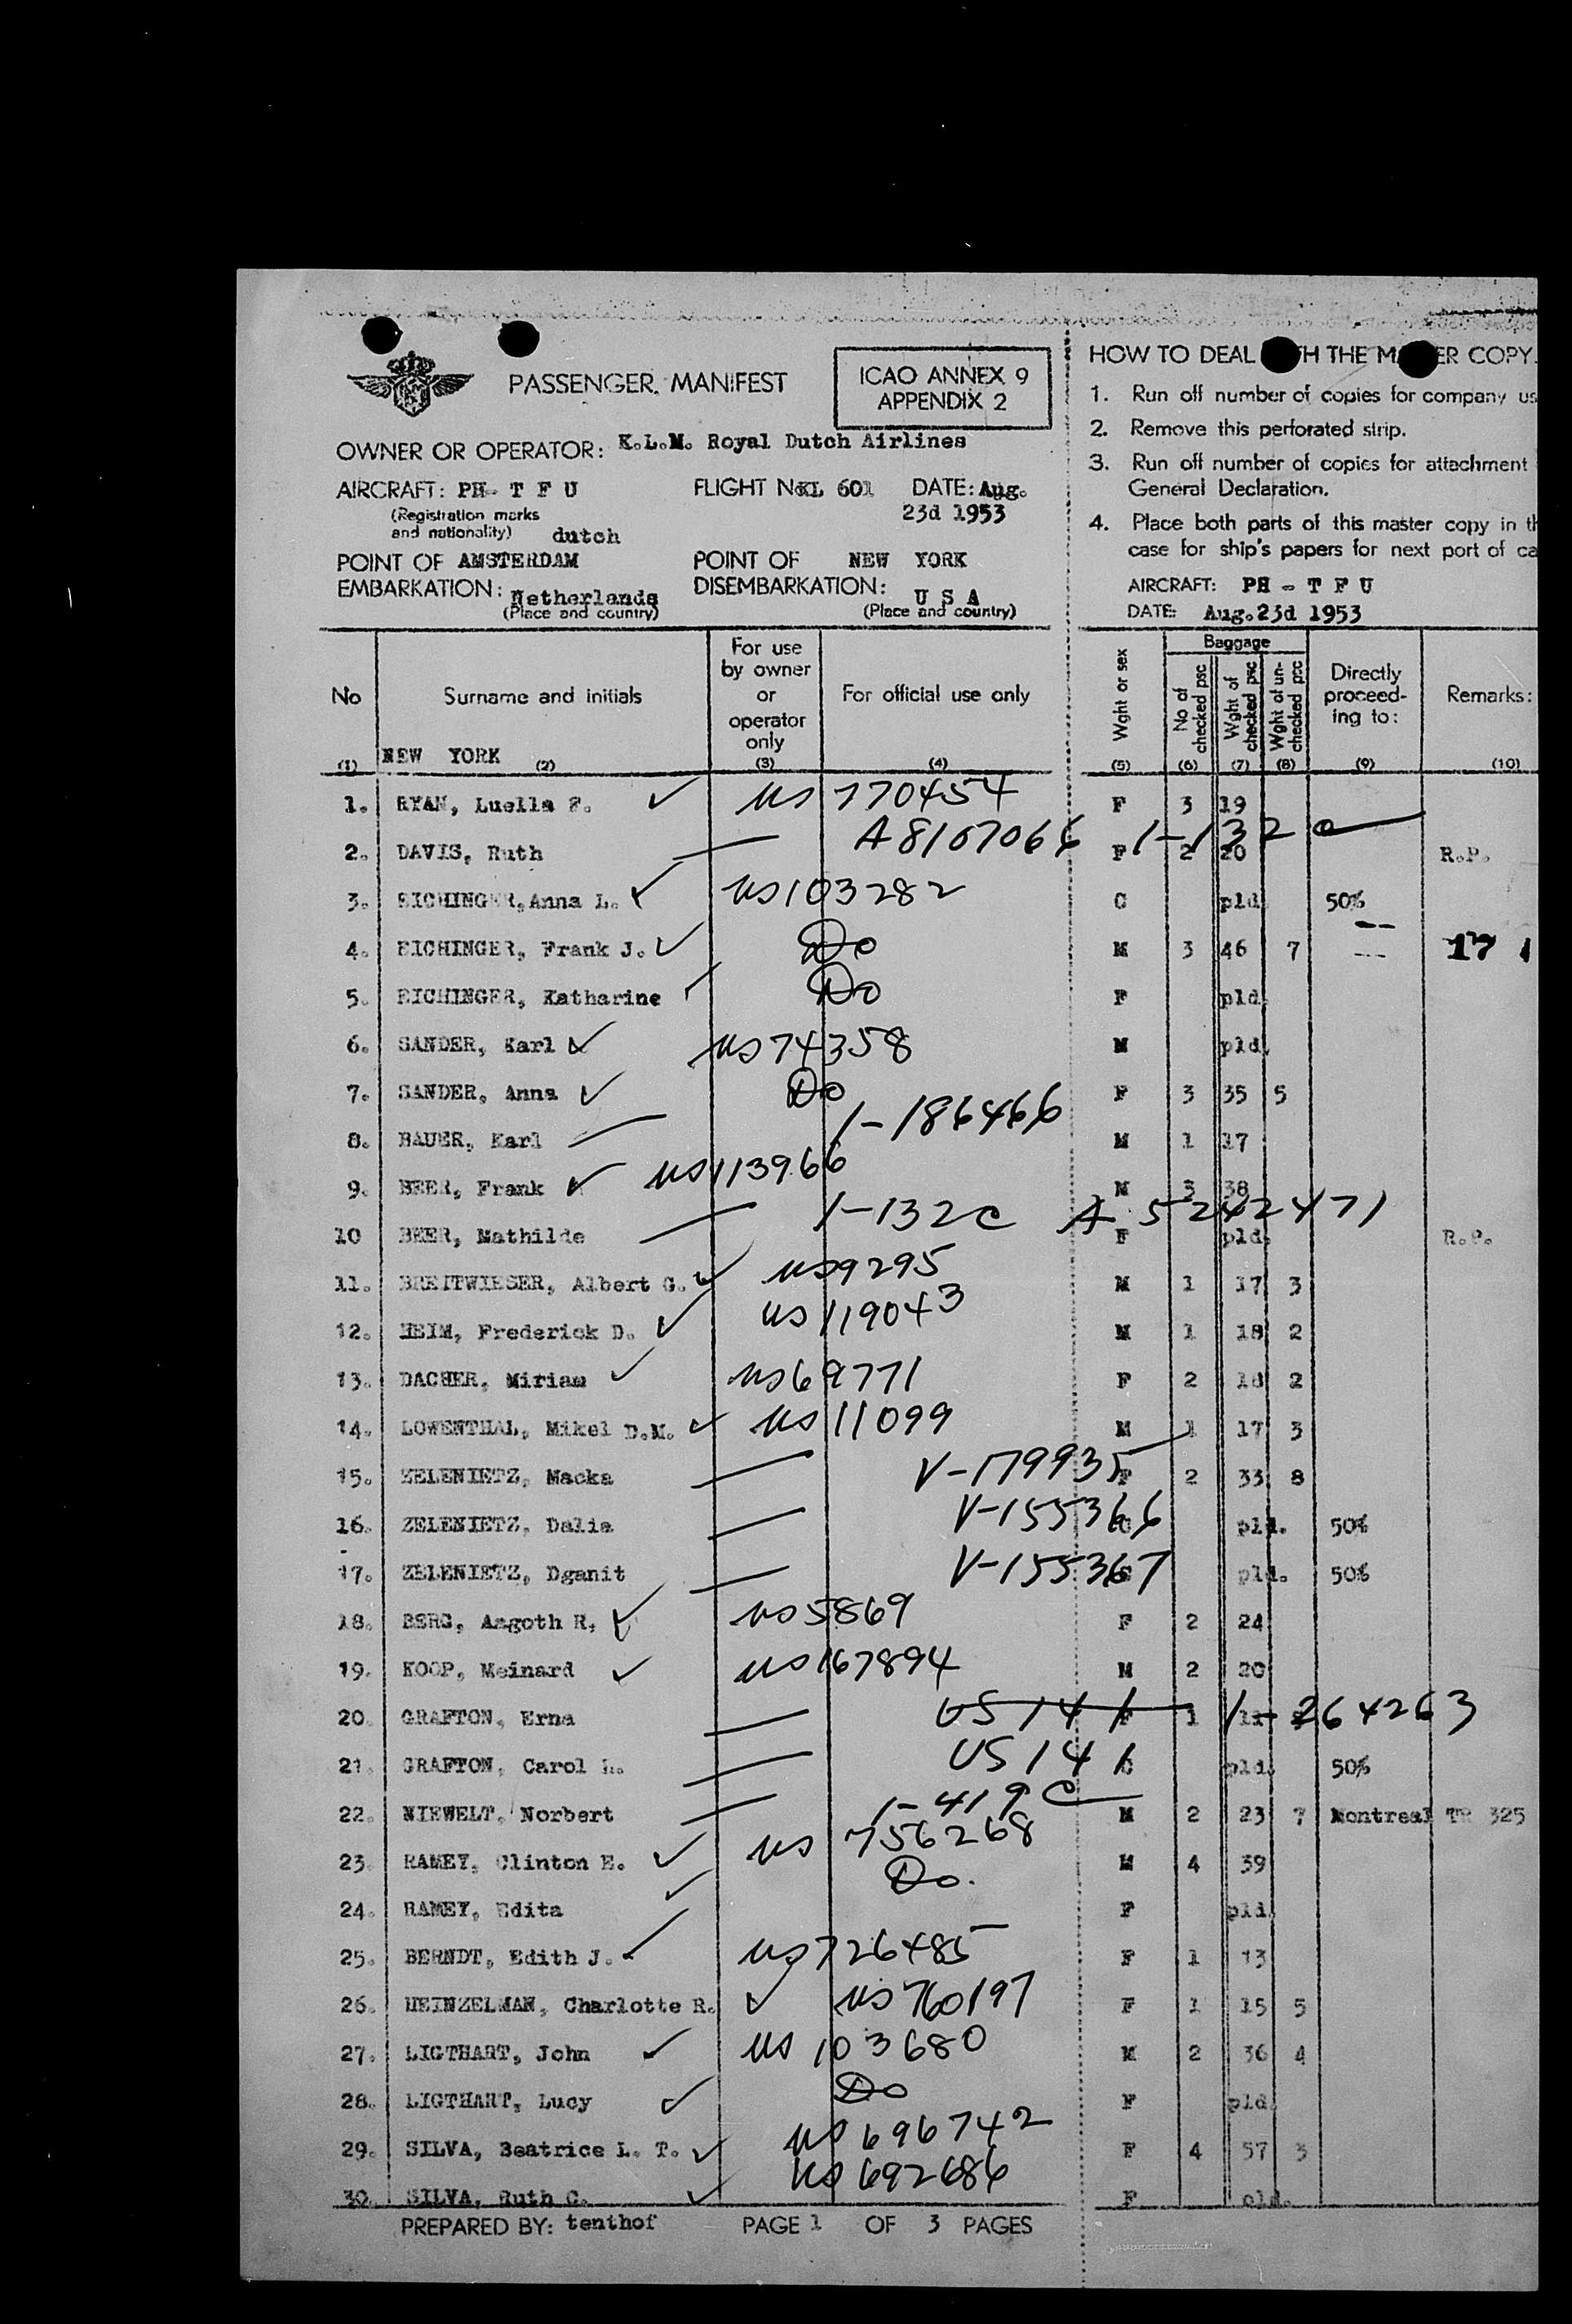 PASSENGER MANIFEST
ICAO ANNEX 9
APPENDIX 2
OWNER OR OPERATOR: K.L.M. Royal Dutch Airlines
AIRCRAFT: PH- T F U FLIGHT No KL 601 DATE: Aug.
(Registration marks 23d 1953
and nationality) dutch
POINT OF AMSTERDAM POINT OF NEW YORK
EMBARKATION: Netherlands DISEMBARKATION: U S A
(Place and country) (Place and country)
HOW TO DEAL H THE M ER COPY.
1. Run off number of copies for company us
2. Remove this perforated strip.
3. Run off number of copies for attachment
General Declaration.
4. Place both parts of this master copy in th
case for ship's papers for next port of ca
AIRCRAFT: PH - T F U
DATE: Aug.23d 1953
No Surname and initials For use by owner or operator only For official use only Wght or sex Baggage No of checked psc Wght of checked psc Wght of un-checked pcc Directly proceed-ing to: Remarks:
NEW YORK
(1) (2) (3) (4) (5) (6) (7) (8) (9) (10)
1. RYAN, Luella F. ✓ US 770454 F 3 19
2. DAVIS, Ruth — A8107066 1-132c F 2 20 R.P.
3. EICHINGER, Anna L. ✓ US103282 C pld. 50%
4. EICHINGER, Frank J. ✓ Do M 3 46 7 --- 17
5. EICHINGER, Katharine ✓ Do F pld.
6. SANDER, Karl ✓ US74358 M pld.
7. SANDER, Anna ✓ Do F 3 35 5
8. BAUER, Karl — 1-186466 M 1 17
9. BEER, Frank ✓ US113966 M 3 38
10 BEER, Mathilde — 1-132c A 5242471 F pld. R.P.
11. BREITWIESER, Albert G. ✓ US9295 M 1 17 3
12. HEIM, Frederick D. ✓ US119043 M 1 18 2
13. DACHER, Miriam ✓ US69771 F 2 18 2
14. LOWENTHAL, Mikel D.M. ✓ US11099 M 1 17 3
15. ZELENIETZ, Macka — V-179935 F 2 33 8
16. ZELENIETZ, Dalia — V-155366 C pld. 50%
17. ZELENIETZ, Dganit — V-155367 pld. 50%
18. BERG, Aagoth R, ✓ US5869 F 2 24
19. KOOP, Meinard ✓ US167894 M 2 20
20. GRAFTON, Erna — US141 1-264263 F 1 11
21. GRAFTON, Carol — US141 C pld. 50%
22. NIEWELT, Norbert — 1-419C M 2 23 7 Montreal TR 325
23. RAMEY, Clinton E. ✓ US 756268 M 4 39
24. RAMEY, Edita ✓ Do. F pld.
25. BERNDT, Edith J. ✓ US726485 F 1 13
26. HEINZELMAN, Charlotte R. ✓ US760197 F 1 15 5
27. LIGTHART, John ✓ US 103680 M 2 36 4
28. LIGTHART, Lucy ✓ Do F pld.
29. SILVA, Beatrice L. T. ✓ US 696742 F 4 57 3
30. SILVA, Ruth C. ✓ US 692686 F pld.
PREPARED BY: tenthof PAGE 1 OF 3 PAGES